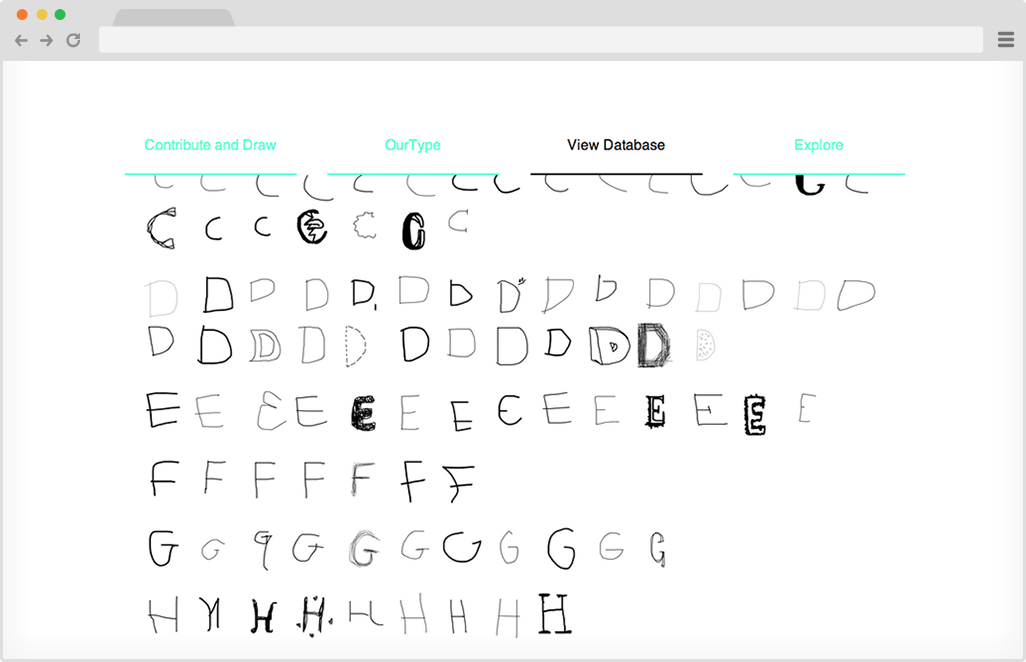 Contribute and Draw OurType View Database Explore
C C C C C C C C C C C C C C C
C C C C C C C
D D D D D D D D D D D D D D D
D D D D D D D D D D D D
E E E E E E E E E E E E E E
F F F F F F F
G G G G G G G G G G G
H H H H H H H H H